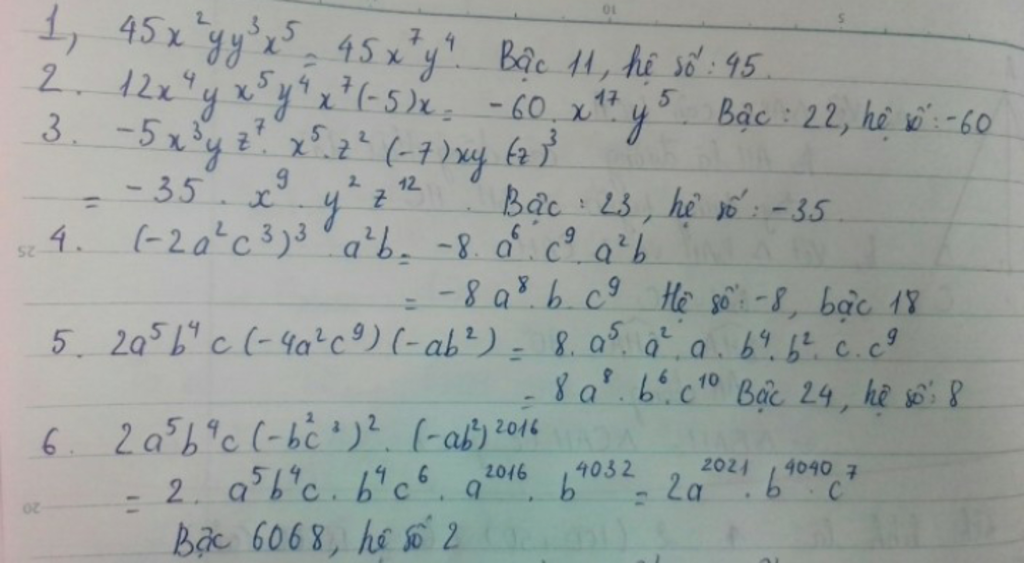 1, 45x²yy³x⁵ = 45x⁷y⁴. Bậc 11, hệ số: 45.
2. 12x⁴y x⁵y⁴ x⁷(-5)x = -60. x¹⁷ y⁵. Bậc: 22, hệ số: -60
3. -5x³y z⁷. x⁵. z² (-7)xy (z)³
= -35. x⁹. y² z¹². Bậc: 23, hệ số: -35.
4. (-2a²c³)³ a²b = -8. a⁶. c⁹. a²b
= -8 a⁸. b. c⁹ Hệ số: -8, bậc 18
5. 2a⁵b⁴c (-4a²c⁹)(-ab²) = 8. a⁵. a². a. b⁴. b². c. c⁹
= 8a⁸. b⁶. c¹⁰ Bậc 24, hệ số: 8
6. 2a⁵b⁴c (-b²c³)². (-ab²)²⁰¹⁶
= 2. a⁵b⁴c. b⁴c⁶. a²⁰¹⁶. b⁴⁰³² = 2a²⁰²¹. b⁴⁰⁴⁰. c⁷
Bậc 6068, hệ số 2